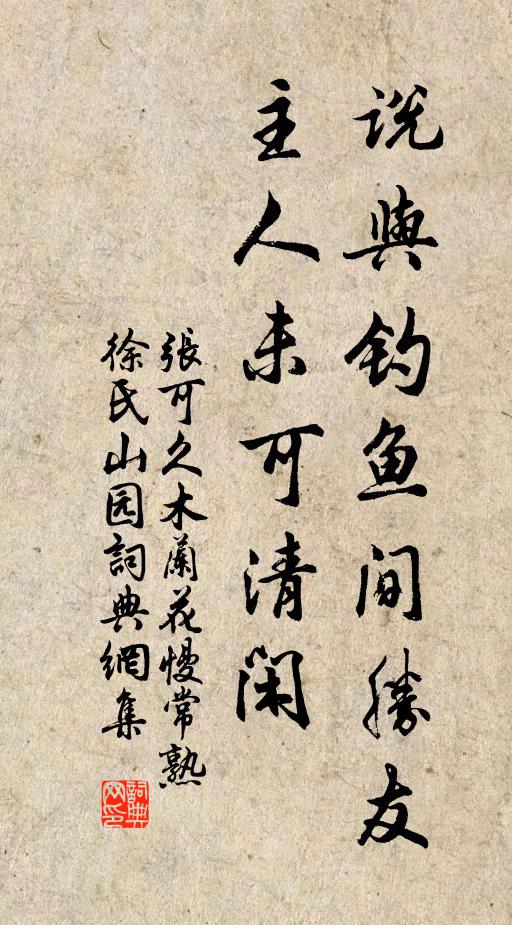 说與钓鱼间勝友
主人未可清闲
張可久木蘭花慢常熟
徐氏山园詞典網集
詞典网印